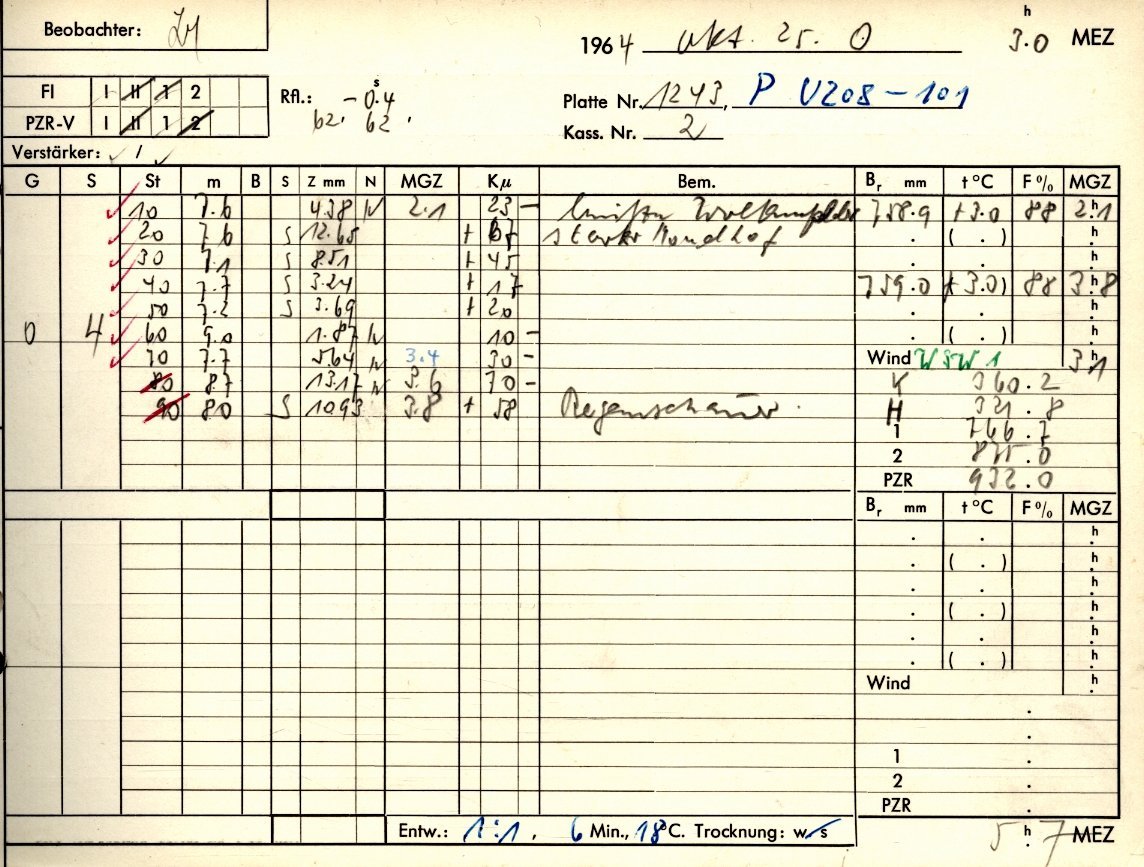 Beobachter:
1964 Okt. 25. 0 3.0 h MEZ
FI I II 1 2
PZR-V I II 1 2
Rfl.: - 0.4 s
62. 62.
Platte Nr. 1243, P VZ08-101
Kass. Nr. 2
Verstärker: /
G S St m B S Z mm N MGZ Kμ Bem. Br mm t °C F % MGZ
10 7.6 4.38 N 2.1 23 - 758.9 +3.0 88 2.1 h
20 7.6 S 12.65 + 67 starker Mondhof . ( . ) h
30 7.1 S 8.51 + 45 . . h
40 7.7 S 3.24 + 17 759.0 (+3.0) 88 3.8 h
50 7.2 S 3.69 + 20 . . h
0 4 60 9.0 1.87 N 10 - . ( . ) h
70 7.7 5.64 N 3.4 30 - Wind WSW 1 3.1 h
80 8.7 13.17 N 3.6 70 - K 360.2
90 8.0 S 10.93 3.8 + 58 Regenschauer. H 321.8
1 766.7
2 .0
PZR 932.0
Br mm t °C F % MGZ
. . h
. ( . ) h
. . h
. ( . ) h
. . h
. ( . ) h
Wind h
.
.
1 .
2 .
PZR .
Entw.: 1:1, 6 Min., 18°C. Trocknung: w/s
5 h 7 MEZ